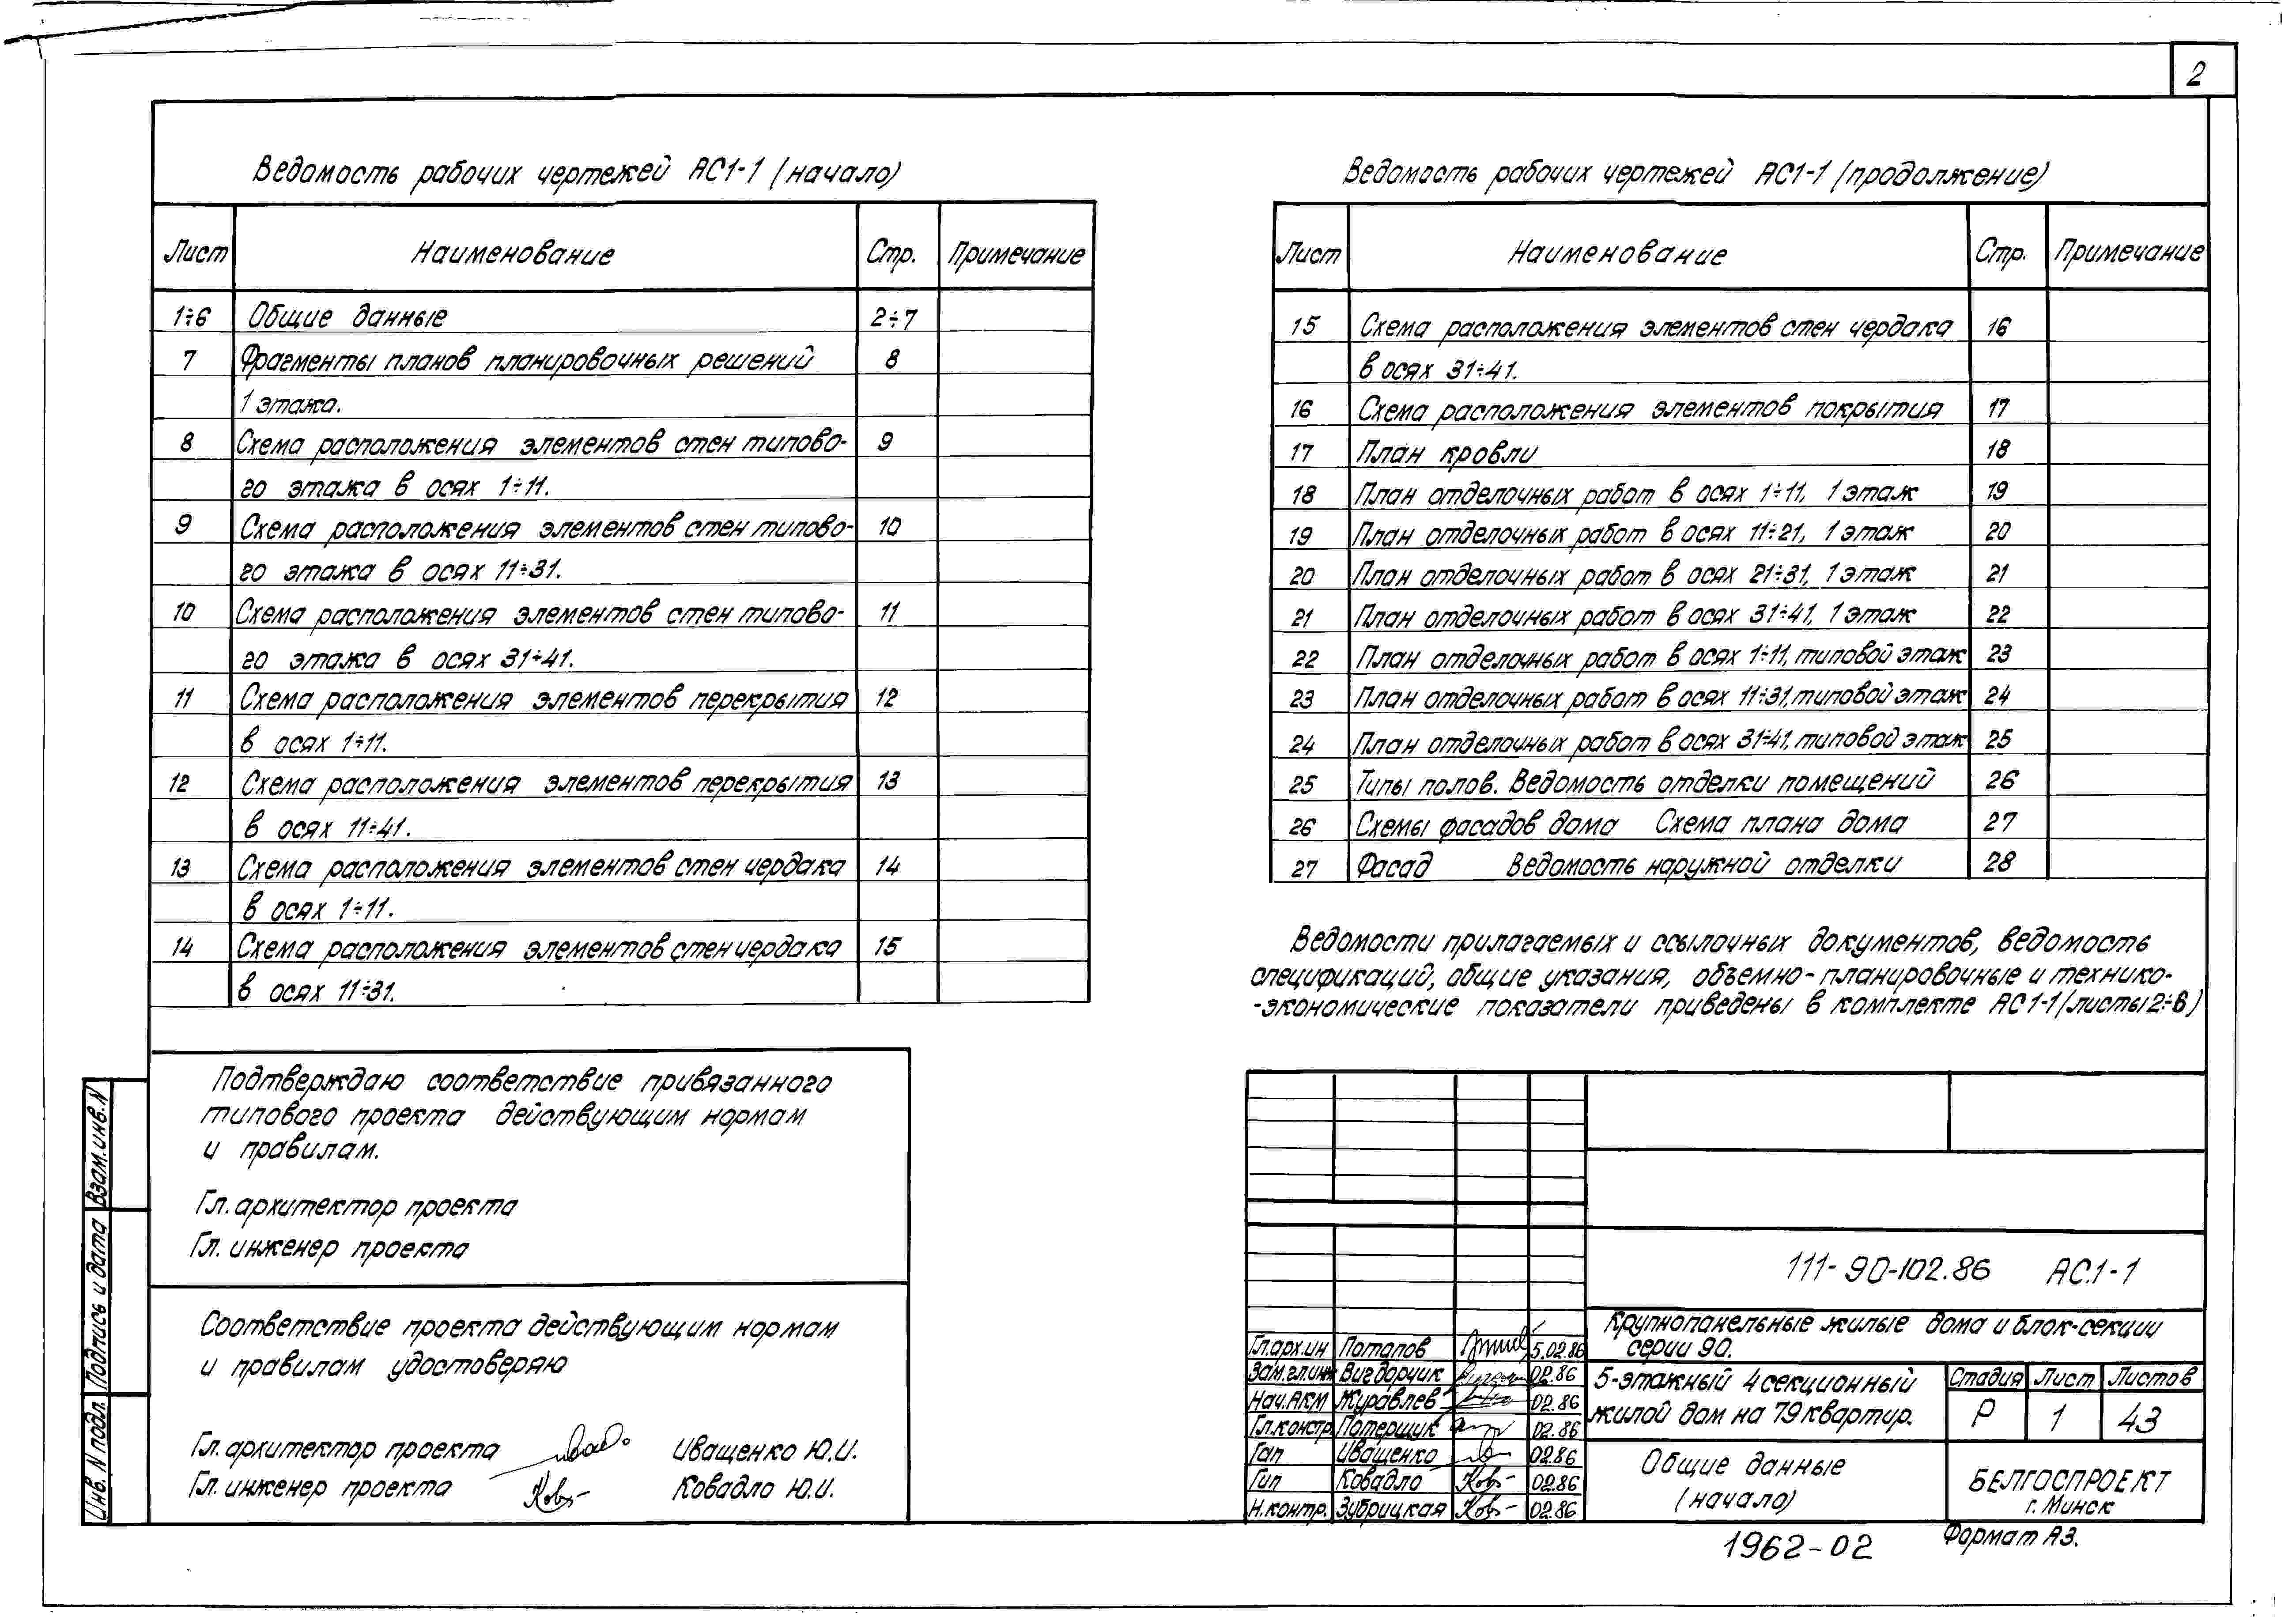 2
Ведомость рабочих чертежей АС1-1 (начало)
Лист Наименование Стр. Примечание
1÷6 Общие данные 2÷7
7 Фрагменты планов планировочных решений 8
1 этажа.
8 Схема расположения элементов стен типово- 9
го этажа в осях 1÷11.
9 Схема расположения элементов стен типово- 10
го этажа в осях 11÷31.
10 Схема расположения элементов стен типово- 11
го этажа в осях 31÷41.
11 Схема расположения элементов перекрытия 12
в осях 1÷11.
12 Схема расположения элементов перекрытия 13
в осях 11÷41.
13 Схема расположения элементов стен чердака 14
в осях 1÷11.
14 Схема расположения элементов стен чердака 15
в осях 11÷31.
Ведомость рабочих чертежей АС1-1 (продолжение)
Лист Наименование Стр. Примечание
15 Схема расположения элементов стен чердака 16
в осях 31÷41.
16 Схема расположения элементов покрытия 17
17 План кровли 18
18 План отделочных работ в осях 1÷11, 1 этаж 19
19 План отделочных работ в осях 11÷21, 1 этаж 20
20 План отделочных работ в осях 21÷31, 1 этаж 21
21 План отделочных работ в осях 31÷41, 1 этаж 22
22 План отделочных работ в осях 1÷11, типовой этаж 23
23 План отделочных работ в осях 11÷31, типовой этаж 24
24 План отделочных работ в осях 31÷41, типовой этаж 25
25 Типы полов. Ведомость отделки помещений 26
26 Схемы фасадов дома Схема плана дома 27
27 Фасад Ведомость наружной отделки 28
Ведомости прилагаемых и ссылочных документов, ведомость
спецификаций, общие указания, объемно-планировочные и технико-
-экономические показатели приведены в комплекте АС1-1 (листы 2÷6)
Подтверждаю соответствие привязанного
типового проекта действующим нормам
и правилам.
Гл. архитектор проекта
Гл. инженер проекта
Соответствие проекта действующим нормам
и правилам удостоверяю
Гл. архитектор проекта Иващенко Ю.И.
Гл. инженер проекта Ковадло Ю.И.
Взам. инв. N
Подпись и дата
Инв. N подл.
111-90-102.86 АС.1-1
Крупнопанельные жилые дома и блок-секции
серии 90.
Гл.арх.ин Потапов 5.02.86
Зам.гл.инж Вигдорчик 02.86
Нач.АКМ Журавлев 02.86
Гл.констр. Потерщук 02.86
Гап Иващенко 02.86
Гип Ковадло 02.86
Н.контр. Зубрицкая 02.86
5-этажный 4 секционный
жилой дом на 79 квартир.
Стадия Лист Листов
Р 1 43
Общие данные
(начало)
БЕЛГОСПРОЕКТ
г. Минск
1962-02
Формат А3.